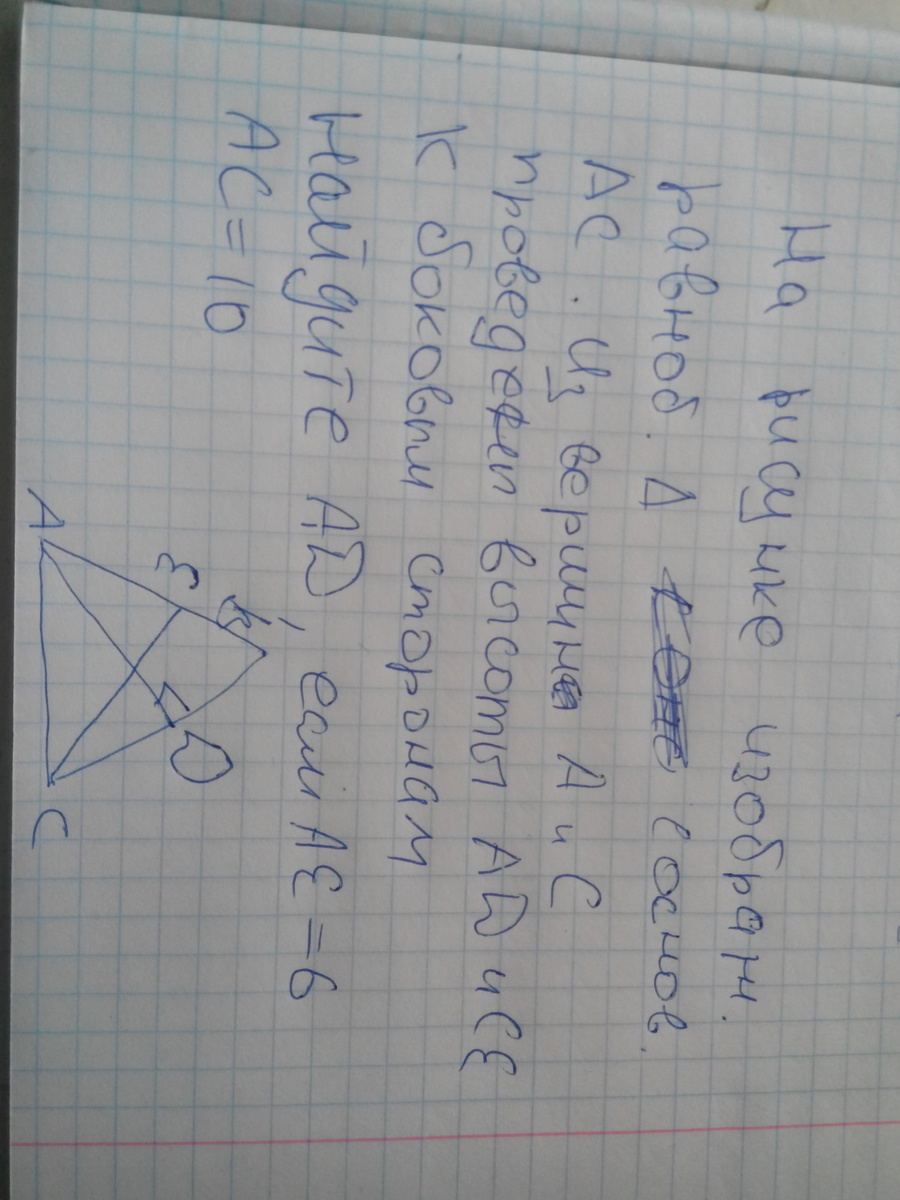 На рисунке изображ.
равноб. Δ с основ.
АС. Из вершин А и С
проведен высоты AD и CE
к боковым сторонам
Найдите AD, если AE = 6
AC = 10
A
E
D
C